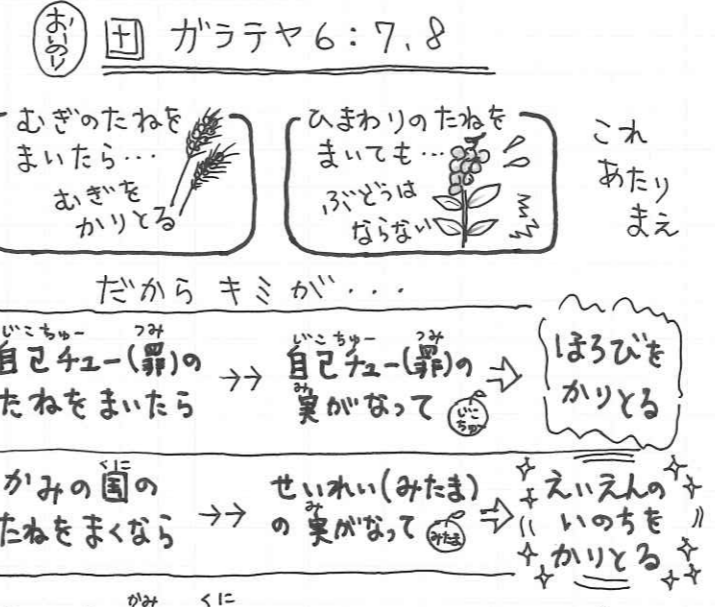 おいのり 土 ガラテヤ6:7、8
むぎのたねを
まいたら・・・
むぎを
かりとる
ひまわりのたねを
まいても・・・
ぶどうは
ならない
これ
あたり
まえ
だから キミが・・・
じこちゅー つみ
自己チュー(罪)の
たねをまいたら
→→
じこちゅー つみ
自己チュー(罪)の
み
実がなって
じこちゅー
⇨
ほろびを
かりとる
くに
かみの国の
たねをまくなら
→→
せいれい(みたま)
み
の実がなって
みたま
⇨
えいえんの
いのちを
かりとる
かみ くに